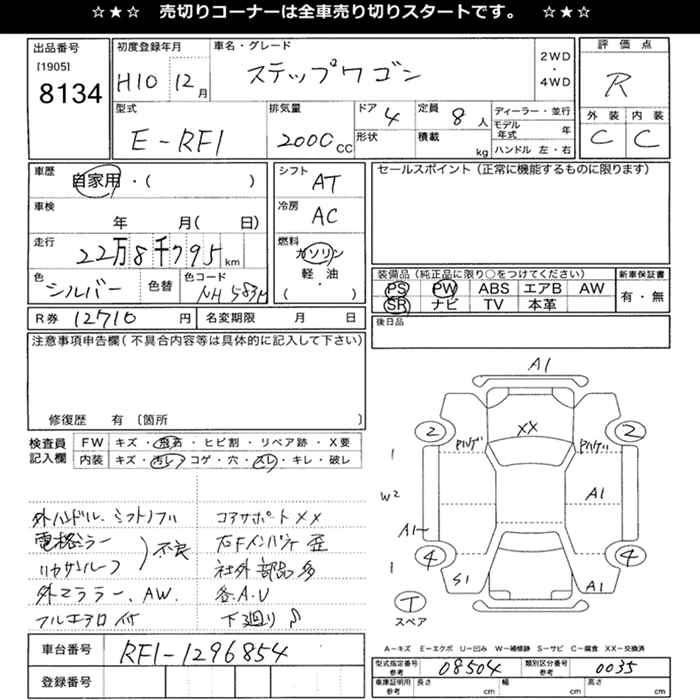 ☆★☆ 売切りコーナーは全車売り切りスタートです。 ☆★☆
出品番号
[1905]
8134
初度登録年月
H10 12月
車名・グレード
ステップワゴン
2WD
・
4WD
評価点
R
外装 内装
C C
型式
E-RF1
排気量
2000 CC
ドア 4
形状
定員 8人
積載 kg
ディーラー・並行
モデル年式 年
ハンドル 左・右
車歴
自家用・( )
車検
年 月( 日)
走行
22万8千795 km
色
シルバー
色替
色コード
NH583M
シフト
AT
冷房
AC
燃料
ガソリン
軽・油
( )
セールスポイント(正常に機能するものに限ります)
装備品(純正品に限り○をつけてください)
PS PW ABS エアB AW
SR ナビ TV 本革
新車保証書
有・無
R券 12710 円
名変期限 月 日
後日品
注意事項申告欄(不具合内容等は具体的に記入して下さい)
修復歴 有 〔箇所 〕
検査員
記入欄
FW キズ・飛石・ヒビ割・リペア跡・X要
内装 キズ・汚レ・コゲ・穴・スレ・キレ・破レ
外ハンドル、シフトノブ
電格ミラー
不良
外ミラー、AW、
フルエアロ付
コアサポートXX
右Fインパネ 歪
社外部品多
各A.U
下廻りS
A1
XX
2 2
1
W2
A1
A1~
4 4
1
S1
A1
T
スペア
A-キズ E-エクボ U-凹み W-補修跡 S-サビ C-腐食 XX-交換済
車台番号
RF1-1296854
登録番号
型式指定番号
参考
08504
類別区分番号
参考
0035
車庫証明用
参考
長さ cm
幅 cm
高さ cm